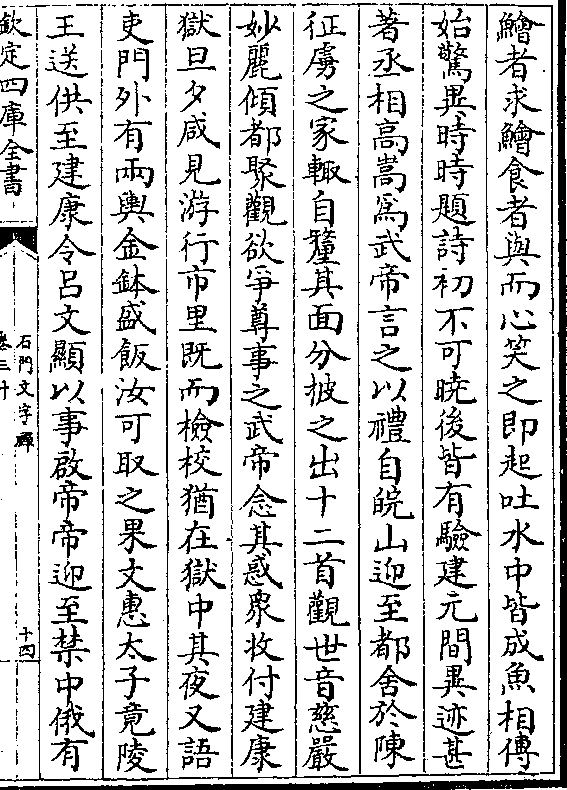 鱠者求鱠食者與而心笑之即起吐水中皆成魚相傳
始驚異時時題詩初不可曉後皆有驗建元間異迹甚
著丞相高嵩爲武帝言之以禮自皖山迎至都舍於陳
征虜之家輙自釐其面分披之出十二首觀世音慈嚴
妙麗傾都聚觀欲爭尊事之武帝忿其惑衆收付建康
獄旦夕咸見游行市里既而檢校猶在獄中其夜又語
吏門外有兩輿金鉢盛飯汝可取之果文惠太子竟陵
王送供至建康令呂文顯以事啟帝帝迎至禁中俄有
欽定四庫全書
石門文字禪
卷三十
十四